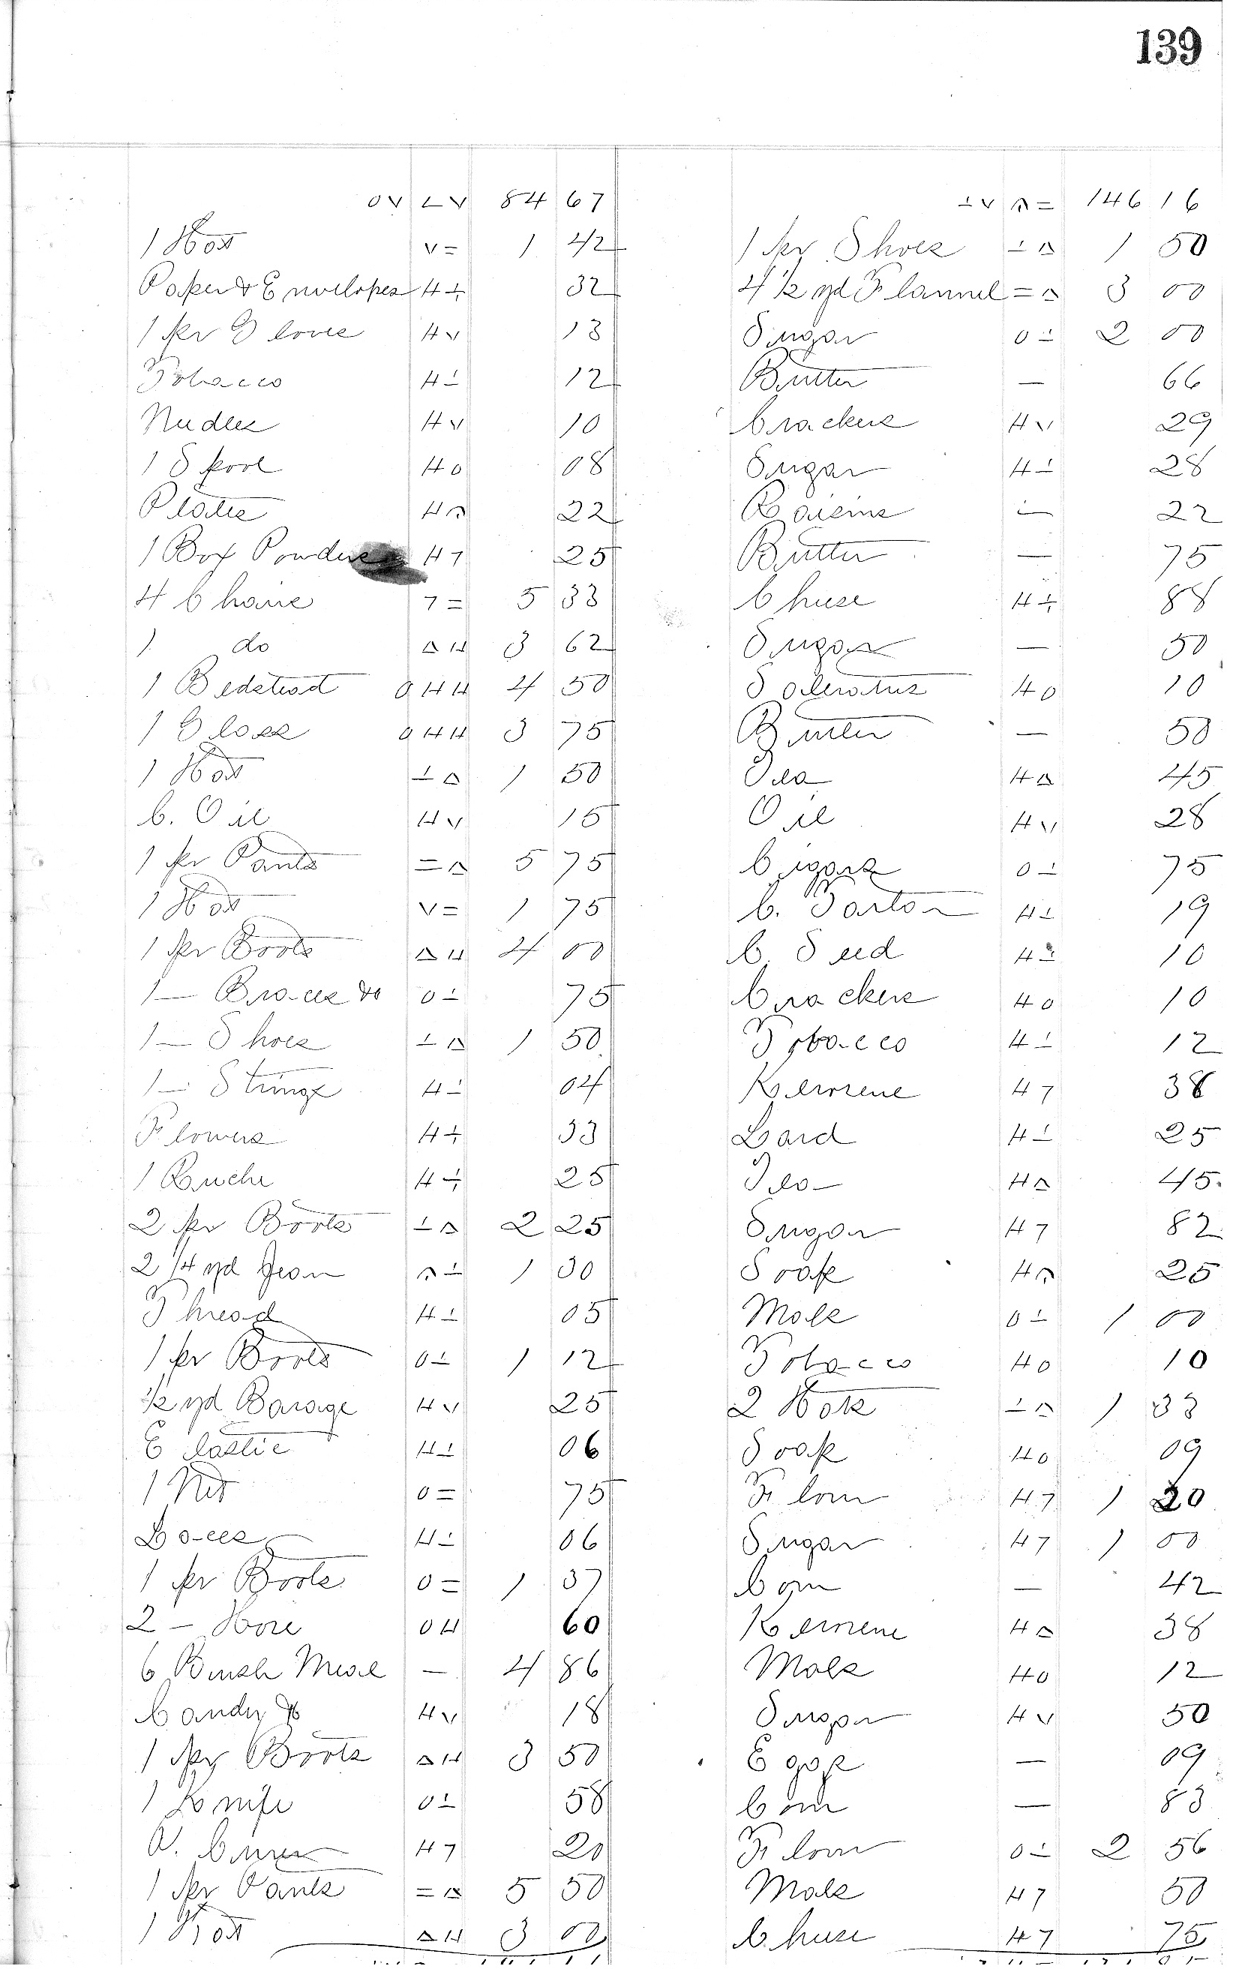 139
84 67
1 Hat v= 1 42
Paper & Envelopes H÷ 32
1 pr Gloves Hv 13
Tobacco H⊥ 12
Nudles Hv 10
1 Spool Ho 08
Plates 22
1 Box Powders H7 25
4 Chairs 7= 5 33
1 do ΔH 3 62
1 Bedstead OHH 4 50
1 Glass OHH 3 75
1 Hat ⊥Δ 1 50
C. Oil Hv 15
1 pr Pants =Δ 5 75
1 Hat v= 1 75
1 pr Boots ΔH 4 00
1 — Braces & O⊥ 75
1 — Shoes ⊥Δ 1 50
1 — Strings H⊥ 04
Flowers H÷ 33
1 Ruche H÷ 25
2 pr Boots ⊥Δ 2 25
2 1/4 yd Jean 1 30
Thread H⊥ 05
1 pr Boots O⊥ 1 12
1/2 yd Barage Hv 25
Elastic H⊥ 06
1 Net O= 75
Laces H⊥ 06
1 pr Boots O= 1 37
2 — Hose OH 60
6 Bush Meal — 4 86
Candy & Hv 18
1 pr Boots ΔH 3 50
1 Knife O⊥ 58
H7 20
1 pr Pants =Δ 5 50
1 Hat ΔH 3 00
146 16
1 pr Shoes ⊥Δ 1 50
4 1/2 yd Flannel =Δ 3 00
Sugar O⊥ 2 00
Butter — 66
Crackers Hv 29
Sugar H⊥ 28
Raisins — 22
Butter — 75
Cheese H÷ 88
Sugar — 50
Saleratus Ho 10
Butter — 50
Tea HΔ 45
Oil Hv 28
Cigars O⊥ 75
C. Tarton H⊥ 19
C. Seed H⊥ 10
Crackers Ho 10
Tobacco H⊥ 12
Kerosene H7 38
Lard H⊥ 25
Tea HΔ 45
Sugar H7 82
Soap 25
Mols O⊥ 1 00
Tobacco Ho 10
2 Hats ⊥Δ 1 33
Soap Ho 09
Flour H7 1 20
Sugar H7 1 00
Corn — 42
Kerosene HΔ 38
Mols Ho 12
Sugar Hv 50
Eggs — 09
Corn — 83
Flour O⊥ 2 56
Mols H7 50
Cheese H7 75